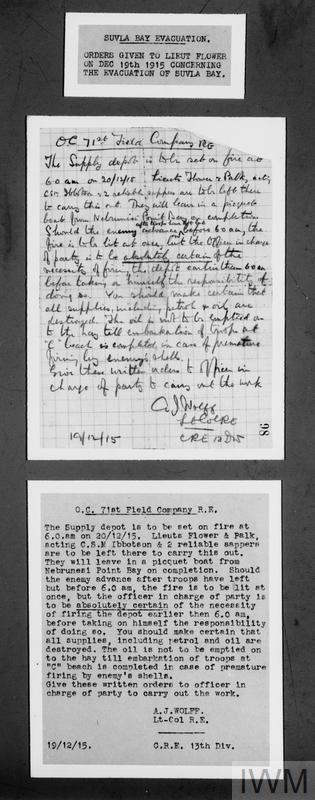 SUVLA BAY EVACUATION.
ORDERS GIVEN TO LIEUT FLOWER
ON DEC 19th 1915 CONCERNING
THE EVACUATION OF SUVLA BAY.
O.C. 71st Field Company RE
The Supply depot is to be set on fire at
6.0 am on 20/12/15 Lieuts Flower & Palk, acting
CSM Ibbotson & 2 reliable sappers are to be left there
to carry this out. They will leave in a picquet
boat from Nebrunisi Point Bay on completion
Should the enemy advance after troops have left but before 6.0 am, the
fire is to be lit at once, but the Officer in charge
of party is to be absolutely certain of the
necessity of firing the depot earlier than 6.0 am
before taking on himself the responsibility of
doing so. You should make certain that
all supplies, including petrol & oil, are
destroyed. The oil is not to be emptied on
to the hay till embarkation of troops at
"C" beach is completed in case of premature
firing by enemy's shells.
Give these written orders to Officer in
charge of party to carry out the work
A J Wolff
Lt Col RE
19/12/15
CRE 13 Div
98
O.C. 71st Field Company R.E.
The Supply depot is to be set on fire at
6.0.am on 20/12/15. Lieuts Flower & Palk,
acting C.S.M Ibbotson & 2 reliable sappers
are to be left there to carry this out.
They will leave in a picquet boat from
Nebrunesi Point Bay on completion. Should
the enemy advance after troops have left
but before 6.0 am, the fire is to be lit at
once, but the officer in charge of party is
to be absolutely certain of the necessity
of firing the depot earlier then 6.0 am,
before taking on himself the responsibility
of doing so. You should make certain that
all supplies, including petrol and oil are
destroyed. The oil is not to be emptied on
to the hay till embarkation of troops at
"C" beach is completed in case of premature
firing by enemy's shells.
Give these written orders to officer in
charge of party to carry out the work.
A.J.WOLFF.
Lt-Col R.E.
19/12/15.
C.R.E. 13th Div.
IWM